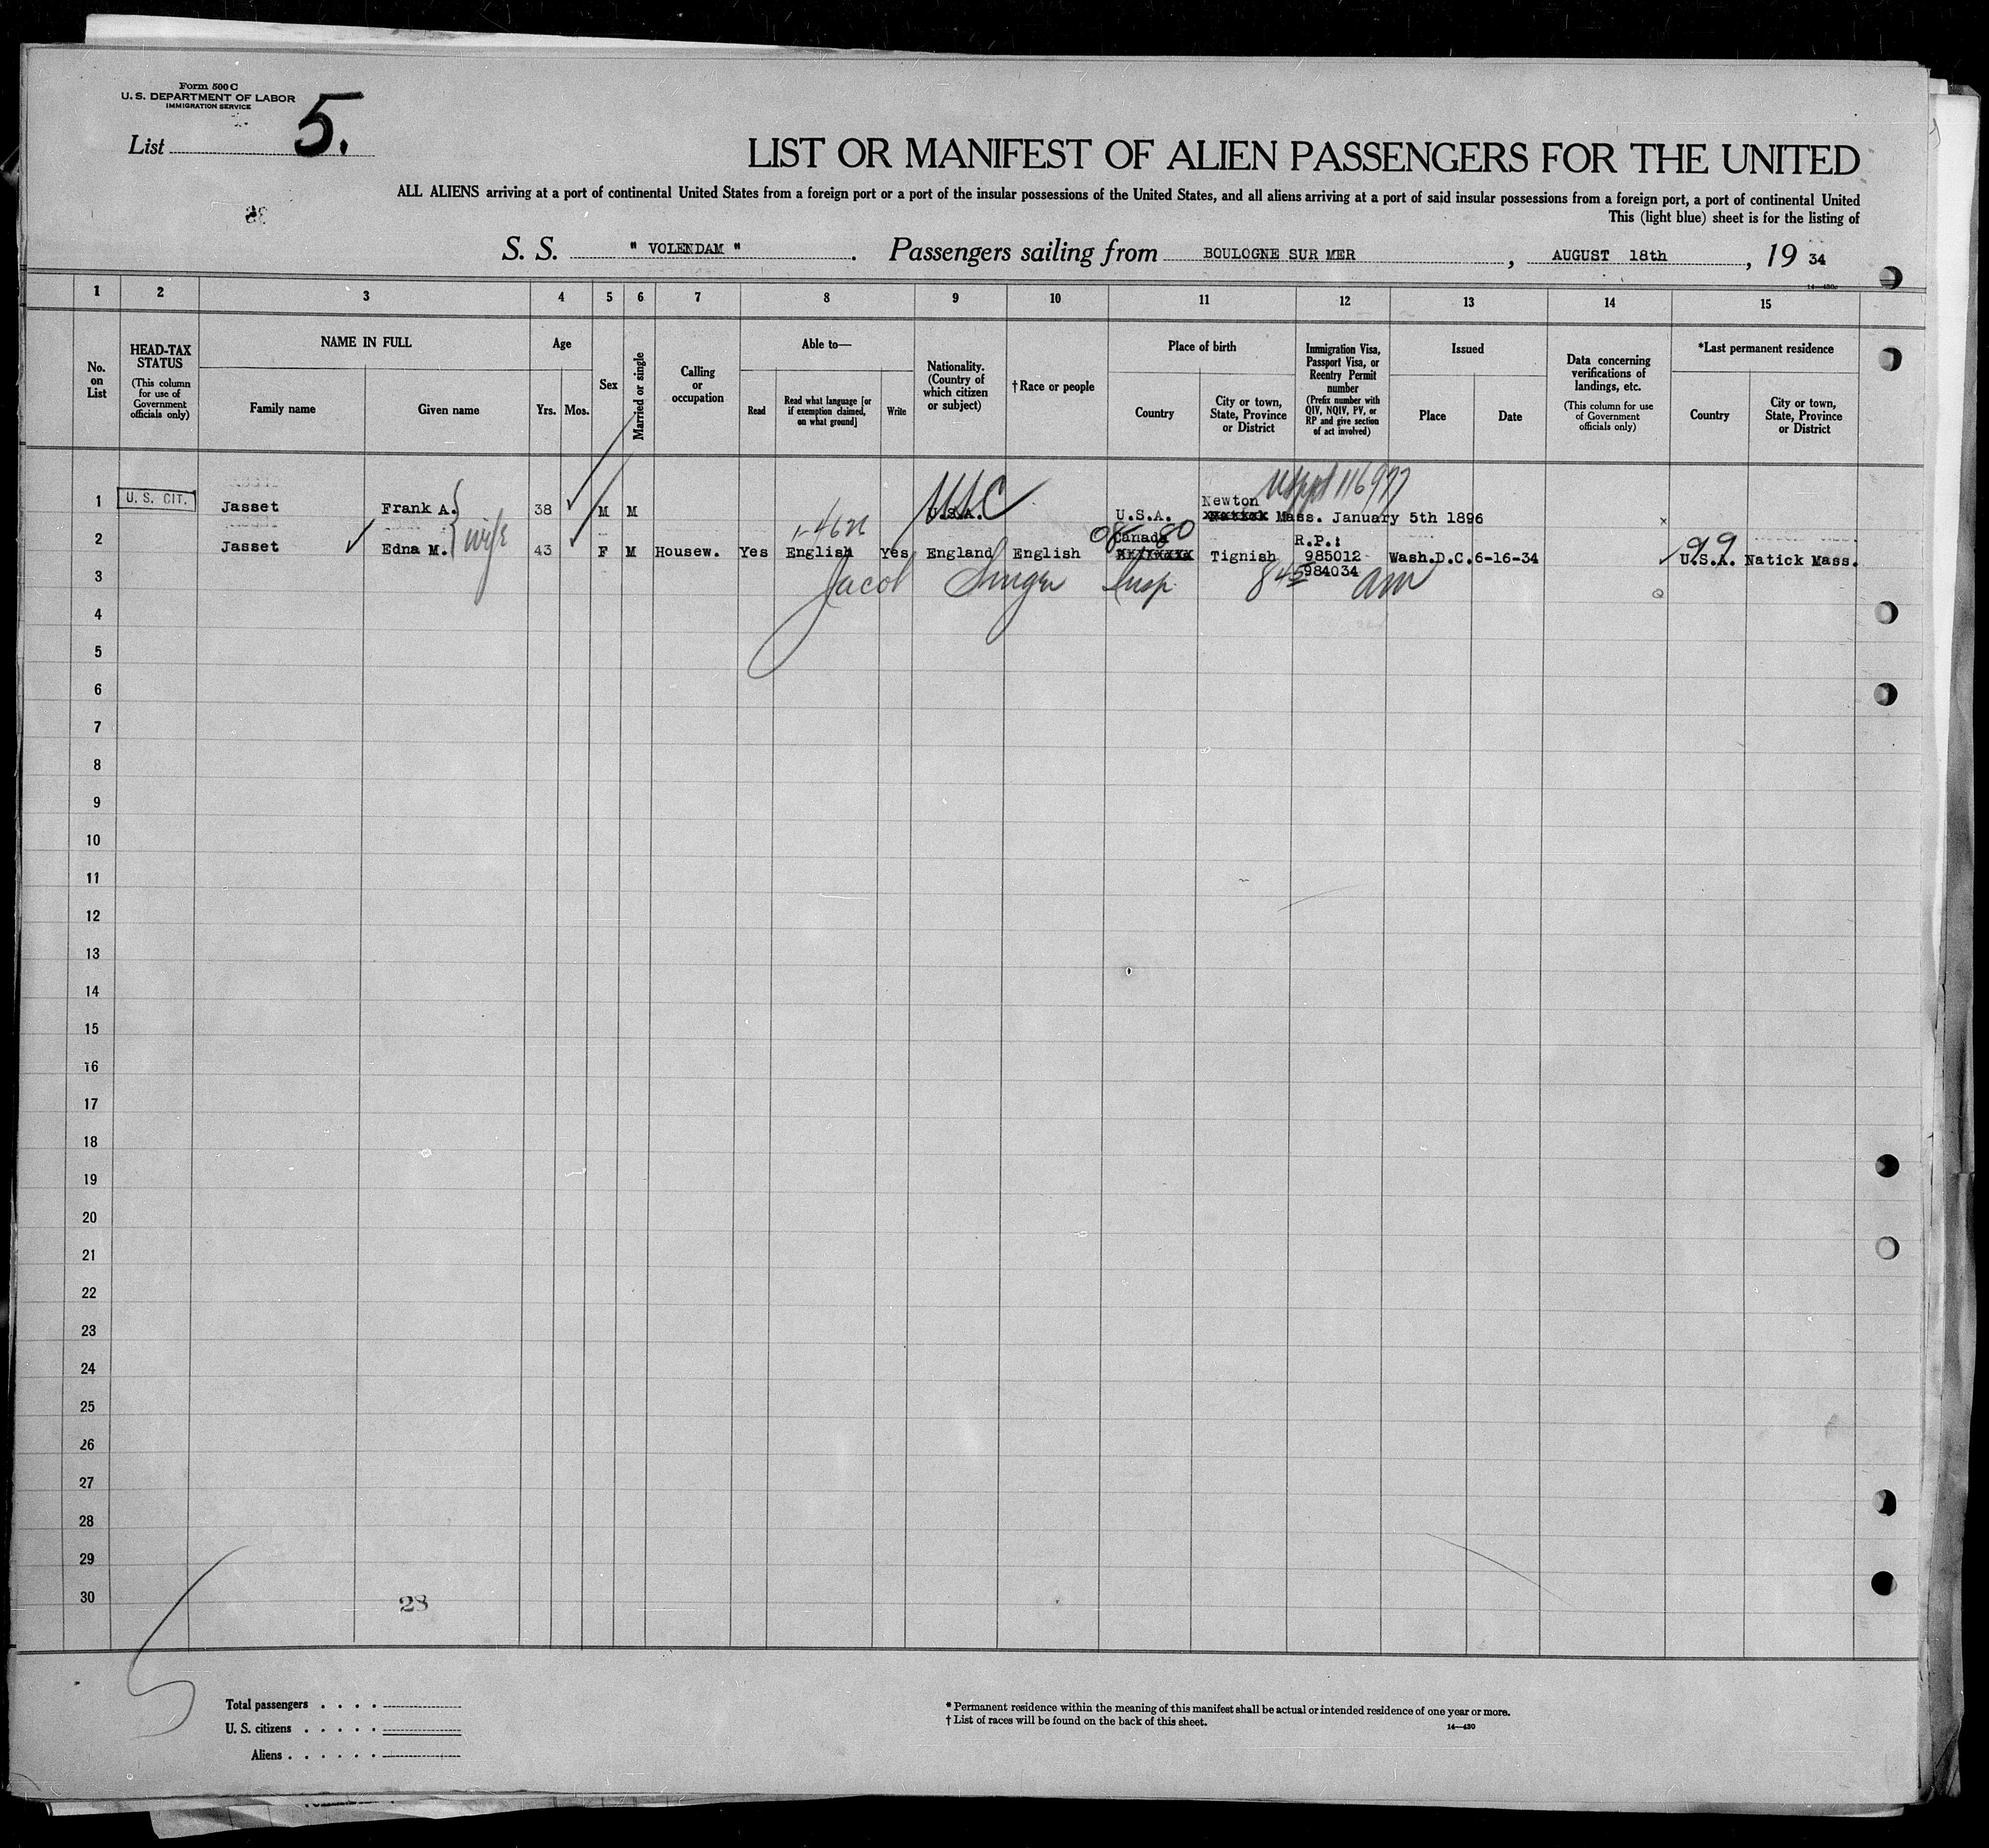 Form 500 C
U. S. DEPARTMENT OF LABOR
IMMIGRATION SERVICE
List 5.
LIST OR MANIFEST OF ALIEN PASSENGERS FOR THE UNITED
ALL ALIENS arriving at a port of continental United States from a foreign port or a port of the insular possessions of the United States, and all aliens arriving at a port of said insular possessions from a foreign port, a port of continental United
This (light blue) sheet is for the listing of
S. S. " VOLENDAM ". Passengers sailing from BOULOGNE SUR MER, AUGUST 18th, 19 34
14—430c
1 2 3 4 5 6 7 8 9 10 11 12 13 14 15
No. on List
HEAD-TAX STATUS (This column for use of Government officials only)
NAME IN FULL
Family name Given name
Age
Yrs. Mos.
Sex
Married or single
Calling or occupation
Able to—
Read
Read what language [or if exemption claimed, on what ground]
Write
Nationality. (Country of which citizen or subject)
†Race or people
Place of birth
Country
City or town, State, Province or District
Immigration Visa, Passport Visa, or Reentry Permit number (Prefix number with QIV, NQIV, PV, or RP and give section of act involved)
Issued
Place Date
Data concerning verifications of landings, etc. (This column for use of Government officials only)
*Last permanent residence
Country
City or town, State, Province or District
1 U. S. CIT. Jasset Frank A. 38 M M U.S.A. USC U.S.A. Newton Mass. January 5th 1896
2 Jasset Edna M. wife 43 F M Housew. Yes English Yes England English Canada Tignish R.P.: 985012 Wash.D.C. 6-16-34 99 U.S.A. Natick Mass.
984034
3 Jacob Singer Insp. 8 45 am
4
5
6
7
8
9
10
11
12
13
14
15
16
17
18
19
20
21
22
23
24
25
26
27
28
29
30
28
Total passengers . . . .
U. S. citizens . . . . .
Aliens . . . . . .
* Permanent residence within the meaning of this manifest shall be actual or intended residence of one year or more.
† List of races will be found on the back of this sheet.
14—430